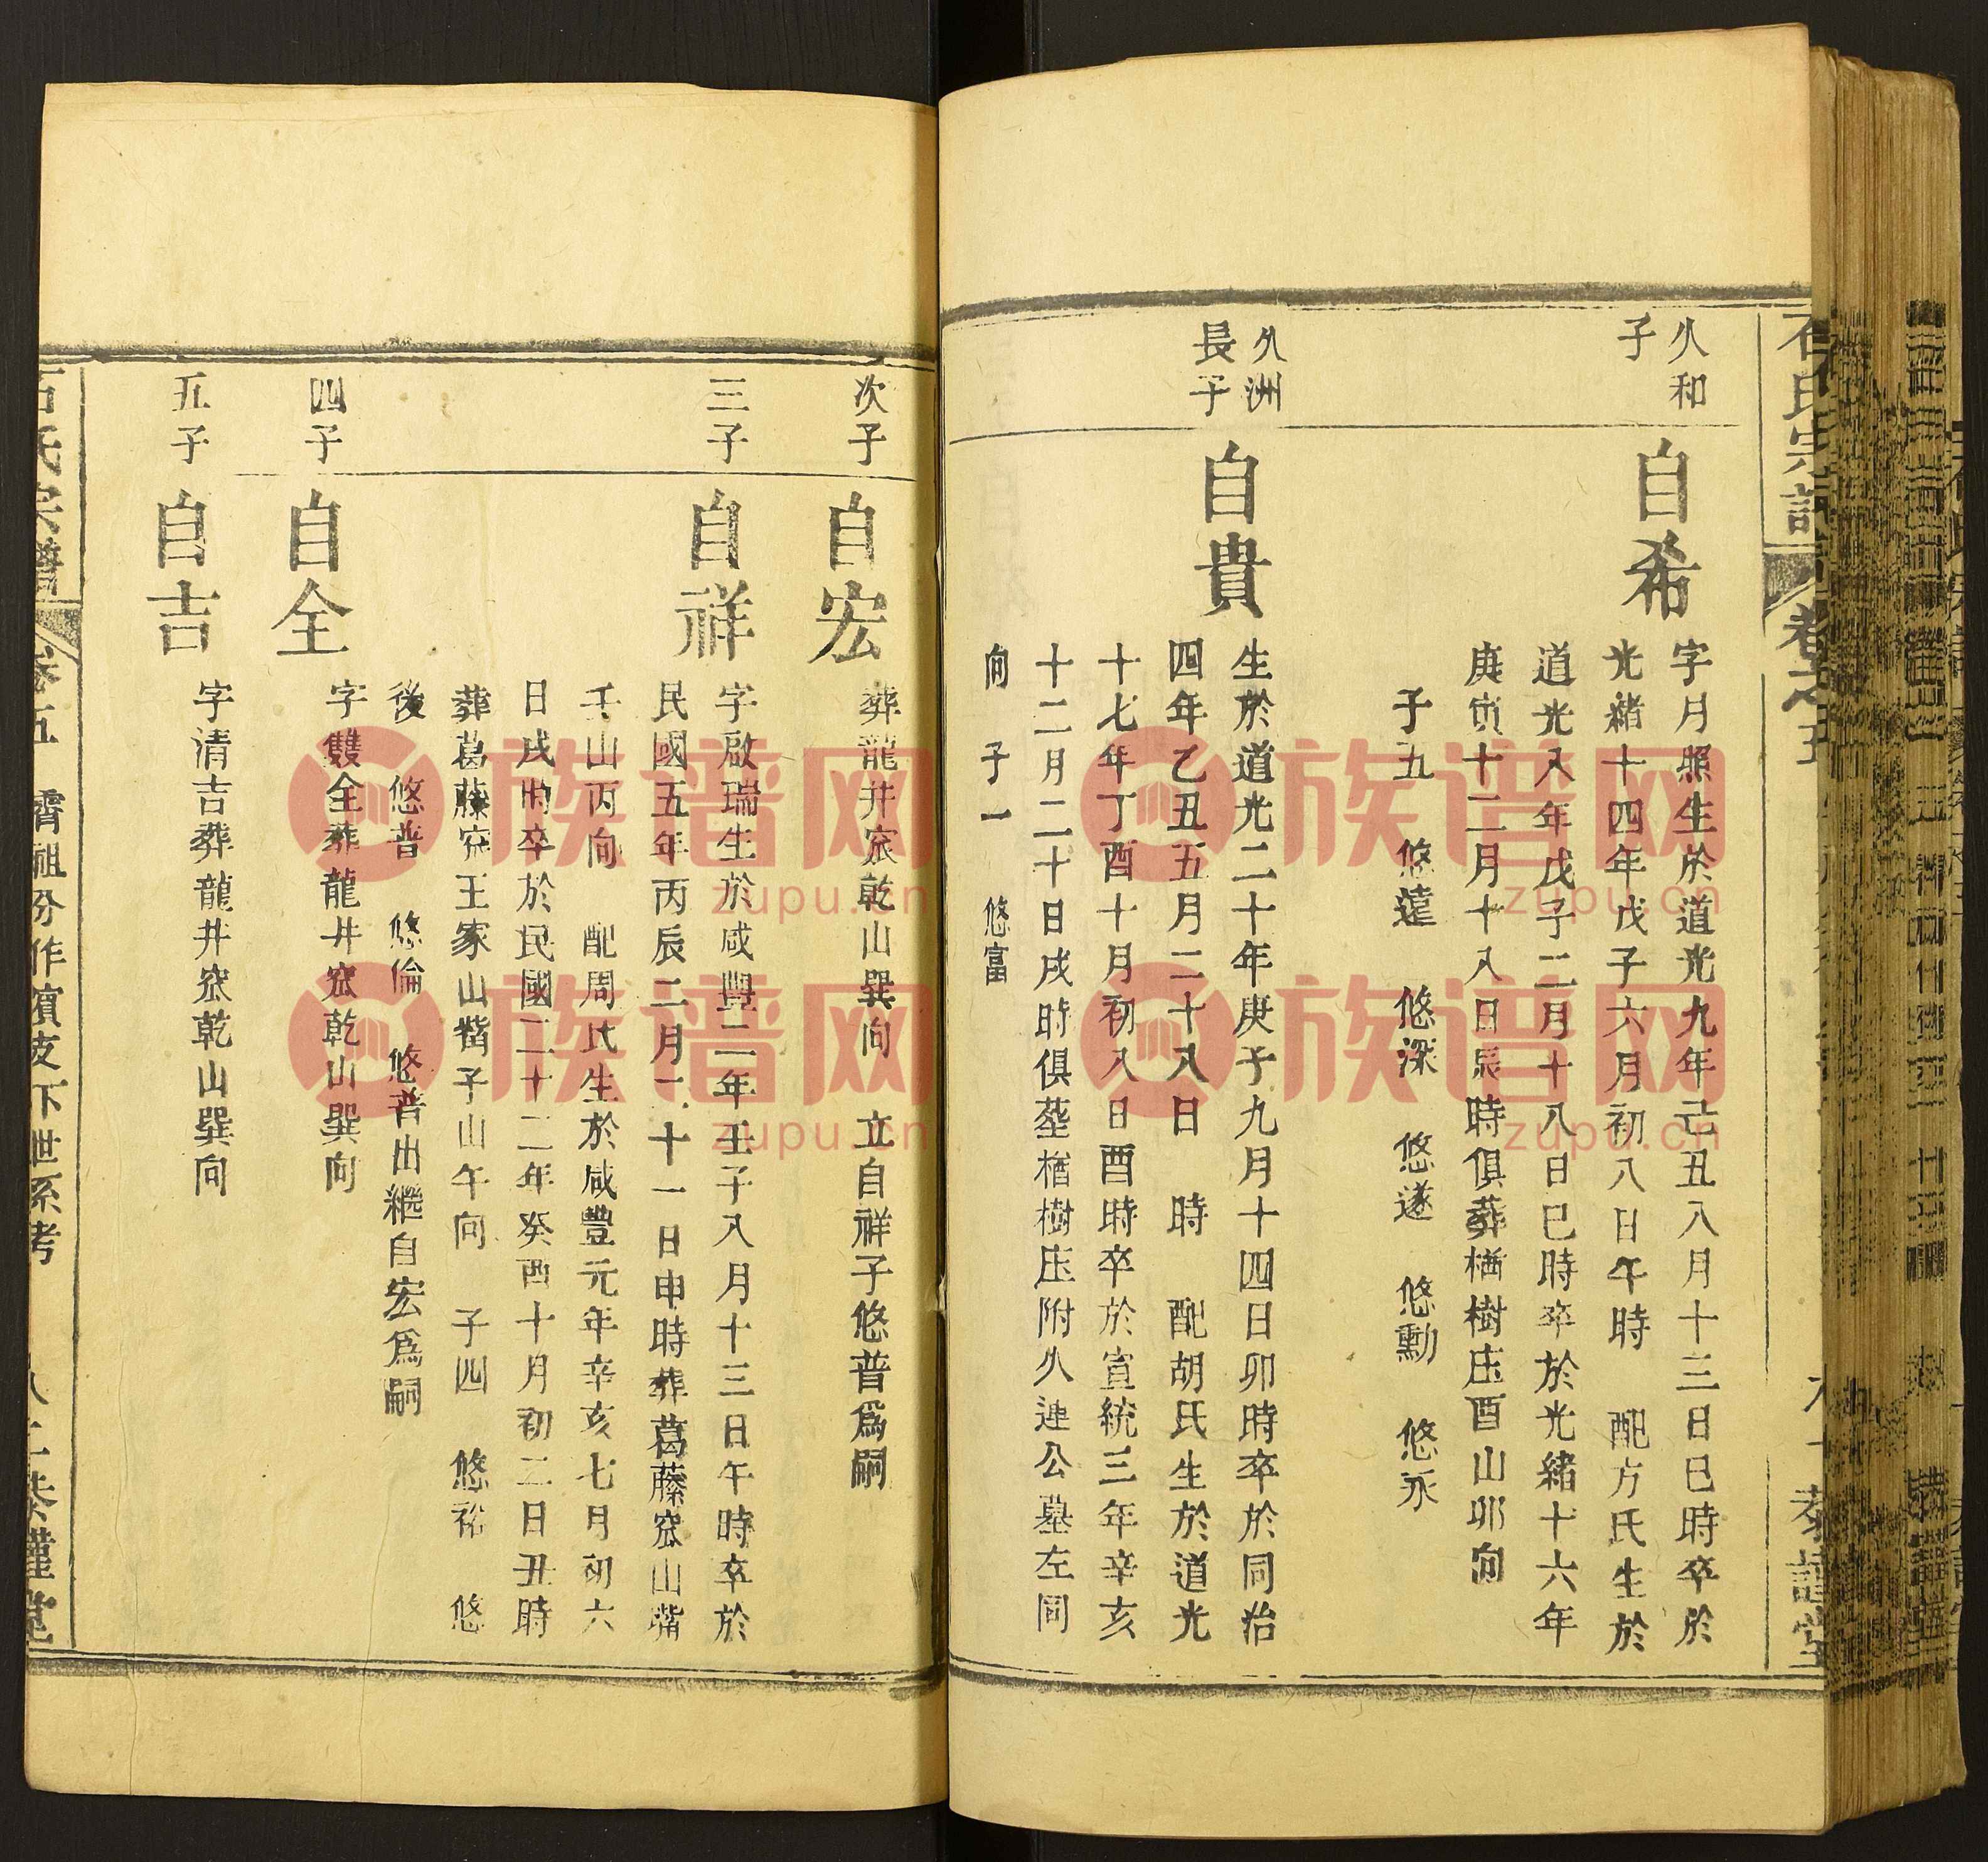 久和
子
自希
字月照生於道光九年己丑八月十三日巳時卒於
光緒十四年戊子六月初八日午時 配方氏生於
道光八年戊子二月十八日巳時卒於光緒十六年
庚寅十二月十八日辰時俱葬楢樹庄酉山卯向
子五 悠遠 悠深 悠遂 悠勳 悠永
久洲
長子
自貴
生於道光二十年庚子九月十四日卯時卒於同治
四年乙丑五月二十八日 時 配胡氏生於道光
十七年丁酉十月初八日酉時卒於宣統三年辛亥
十二月二十日戌時俱塟楢樹庄附久連公墓左同
向 子一 悠富
次子
自宏
葬龍井窊乾山巽向 立自祥子悠普為嗣
三子
自祥
字啟瑞生於咸豐二年壬子八月十三日午時卒於
民國五年丙辰二月二十一日申時葬葛藤窊山嘴
壬山丙向 配周氏生於咸豐元年辛亥七月初六
日戌時卒於民國二十二年癸酉十月初二日丑時
葬葛藤窊王家山嘴子山午向 子四 悠裕 悠
後 悠普 悠倫 悠普出繼自宏為嗣
四子
自全
字雙全葬龍井窊乾山巽向
五子
自吉
字清吉葬龍井窊乾山巽向
石氏宗譜 卷五
族谱网
zupu.cn
族谱网
zupu.cn
族谱网
zupu.cn
族谱网
zupu.cn